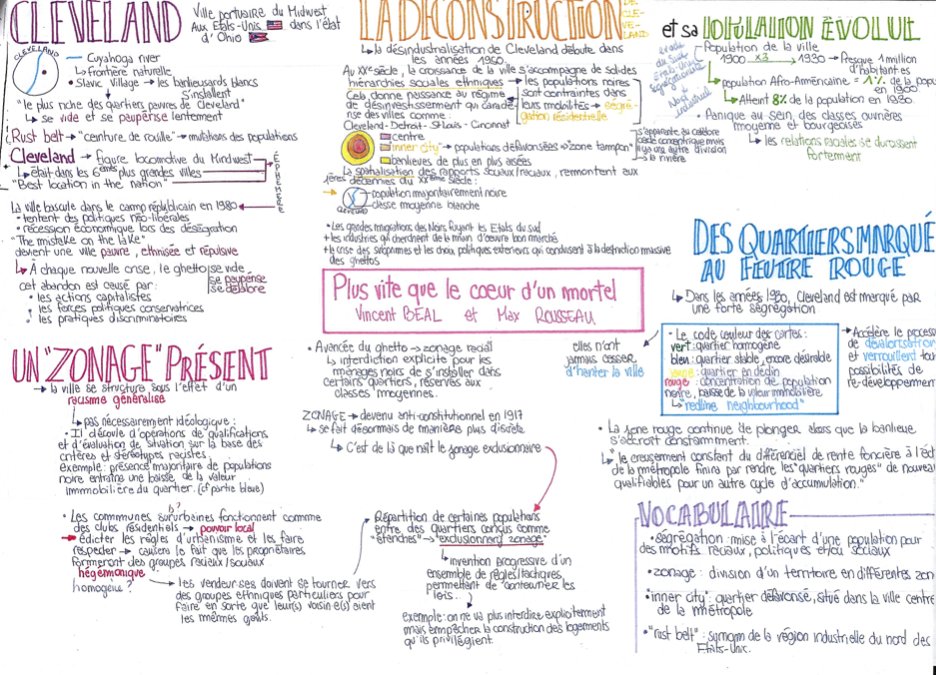 CLEVELAND
Ville portuaire du Midwest
Aux Etats-Unis dans l'état
d'Ohio
CLEVELAND
Cuyahoga river
↳ frontière naturelle
• Slavic Village → les banlieusards blancs
s'installent
"le plus riche des quartiers pauvres de Cleveland"
↳ se vide et se paupérise lentement
Rust belt → "ceinture de rouille" → mutations des populations
Cleveland → figure locomotive du Midwest
↳ était dans les 6èmes plus grandes villes
"Best location in the nation"
ÉPHÉMÈRE
La ville bascule dans le camp républicain en 1980
• tentent des politiques néo-libérales
• récession économique lors des
"The mistake on the lake"
devient une ville pauvre, ethnisée et répulsive
↳ À chaque nouvelle crise, le ghetto se vide
se paupérise
se délabre
cet abandon est causé par :
• les actions capitalistes
• les forces politiques conservatrices
• les pratiques discriminatoires
UN "ZONAGE" PRÉSENT
→ la ville se structure sous l'effet d'un
racisme généralisé
↳ pas nécessairement idéologique :
• Il découle d'opérations de qualifications
et d'évaluation de situation sur la base des
critères et stéréotypes racistes.
exemple : présence majoritaire de populations
noire entraîne une baisse de la valeur
immobilière du quartier. (cf partie bleue)
• Les communes suburbaines fonctionnent comme
des clubs résidentiels → pouvoir local
→ édicter les règles d'urbanisme et les faire
respecter → le fait que les propriétaires
formeront des groupes raciaux/sociaux
hégémonique
homogène ?
→ les vendeur.ses doivent se tourner vers
des groupes ethniques particuliers pour
faire en sorte que leur(s) voisin.e(s) aient
les mêmes goûts.
LA DÉCONSTRUCTION
DE CLEVELAND
↳ la désindustrialisation de Cleveland débute dans
les années 1950.
Au XXe siècle, la croissance de la ville s'accompagne de solides
hiérarchies sociales ethniques → les populations noires
sont contraintes dans
leurs mobilités → ségrégation résidentielle
Cela donne naissance au régime
de désinvestissement qui caractérise
des villes comme :
Cleveland - Detroit - St Louis - Cincinnati
centre
"inner city" → populations défavorisées → "zone tampon"
banlieues de plus en plus aisées
s'apparente au célèbre
code concentrique mais
il y a une autre division
→ la rivière
La spatialisation des rapports sociaux/raciaux, remontent aux
1ères décennies du XXème siècle :
population majoritairement noire
classe moyenne blanche
CLEVELAND
• Les grandes migrations des Noirs fuyant les Etats du sud
+ les industries qui cherchent de la main d'œuvre bon marché
+ la crise des subprimes et les choix politiques extérieurs qui conduisent à la destruction massive
des ghettos
Plus vite que le coeur d'un mortel
Vincent BÉAL et Max ROUSSEAU
elles n'ont
jamais cesser
d'hanter la ville
• Avancée du ghetto → zonage racial
↳ interdiction explicite pour les
ménages noirs de s'installer dans
certains quartiers, réservés aux
classes moyennes.
ZONAGE → devenu anti-constitutionnel en 1917
↳ se fait désormais de manière plus discrète
↳ C'est de là que naît le zonage exclusionnaire
Répartition de certaines populations
entre des quartiers conçus comme
"étanches" → "exclusionnary zonage"
↳ invention progressive d'un
ensemble de règles/tactiques,
permettant de "contourner les
lois".
exemple : on ne va plus interdire explicitement
mais empêcher la construction des logements
qu'ils privilégient.
et sa POPULATION ÉVOLUE
Population de la ville
1900 ×3 1930 → Presque 1 million
d'habitants
population Afro-Américaine = 1% de la pop
en 1900
↳ Atteint 8% de la population en 1930
• Panique au sein, des classes ouvrières
moyenne et bourgeoises
↳ les relations raciales se durcissent
fortement
DES QUARTIERS MARQUÉ
AU FEUTRE ROUGE
↳ Dans les années 1930, Cleveland est marqué par
une forte ségrégation
• Le code couleur des cartes :
vert : quartier homogène
bleu : quartier stable, encore désirable
jaune : quartier en déclin
rouge : concentration de population
noire, baisse de la valeur immobilière.
↳ "redline neighbourhood"
→ Accélère le process
de dévalorisation
et verrouillent tout
possibilités de
re-développement
• La zone rouge continue de plonger alors que la banlieue
s'accroît constamment.
↳ "le creusement constant du différenciel de rente foncière à l'éch
de la métropole finira par rendre les "quartiers rouges" de nouveau
qualifiables pour un autre cycle d'accumulation."
VOCABULAIRE
• ségrégation : mise à l'écart d'une population pour
des motifs raciaux, politiques et/ou sociaux
• zonage : division d'un territoire en différentes zon
• "inner city" : quartier défavorisé, situé dans la ville centre
de la métropole
• "rust belt" : surnom de la région industrielle du nord des
Etats-Unis.